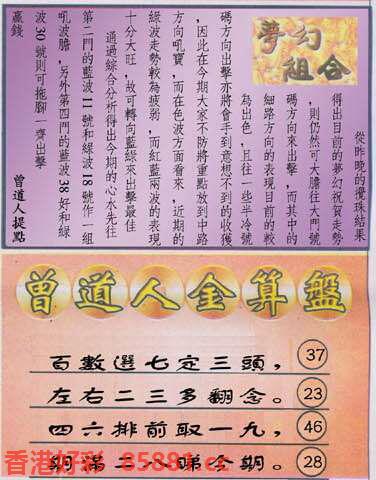 夢幻
組合
從昨晚的攪珠結果
得出目前的夢幻祝賀走勢
，則仍然可大膽往大門號
碼方向來出擊，而其中的
細路方向的表現目前的較
為出色，且往一些半冷號
碼方向出擊亦將會手到意想不到的收獲
，因此在今期大家不防將重點放到中路
方向吼寶，而在色波方面看來，近期的
綠波走勢較為疲弱，而紅藍兩波的表現
十分大旺，故可轉向藍綠來出擊最佳
通過綜合分析得出今期的心水先往
第二門的藍波11號和綠波18號作一組
吼波膽，另外第四門的藍波38好和綠
波30號則可拖腳一齊出擊
贏錢
曾道人提點
曾道人金算盤
百數選七定三頭， 37
左右二三多翻念。 23
四六排前取一九， 46
期滿二八睇今期。 28
香港好彩 85881.cc